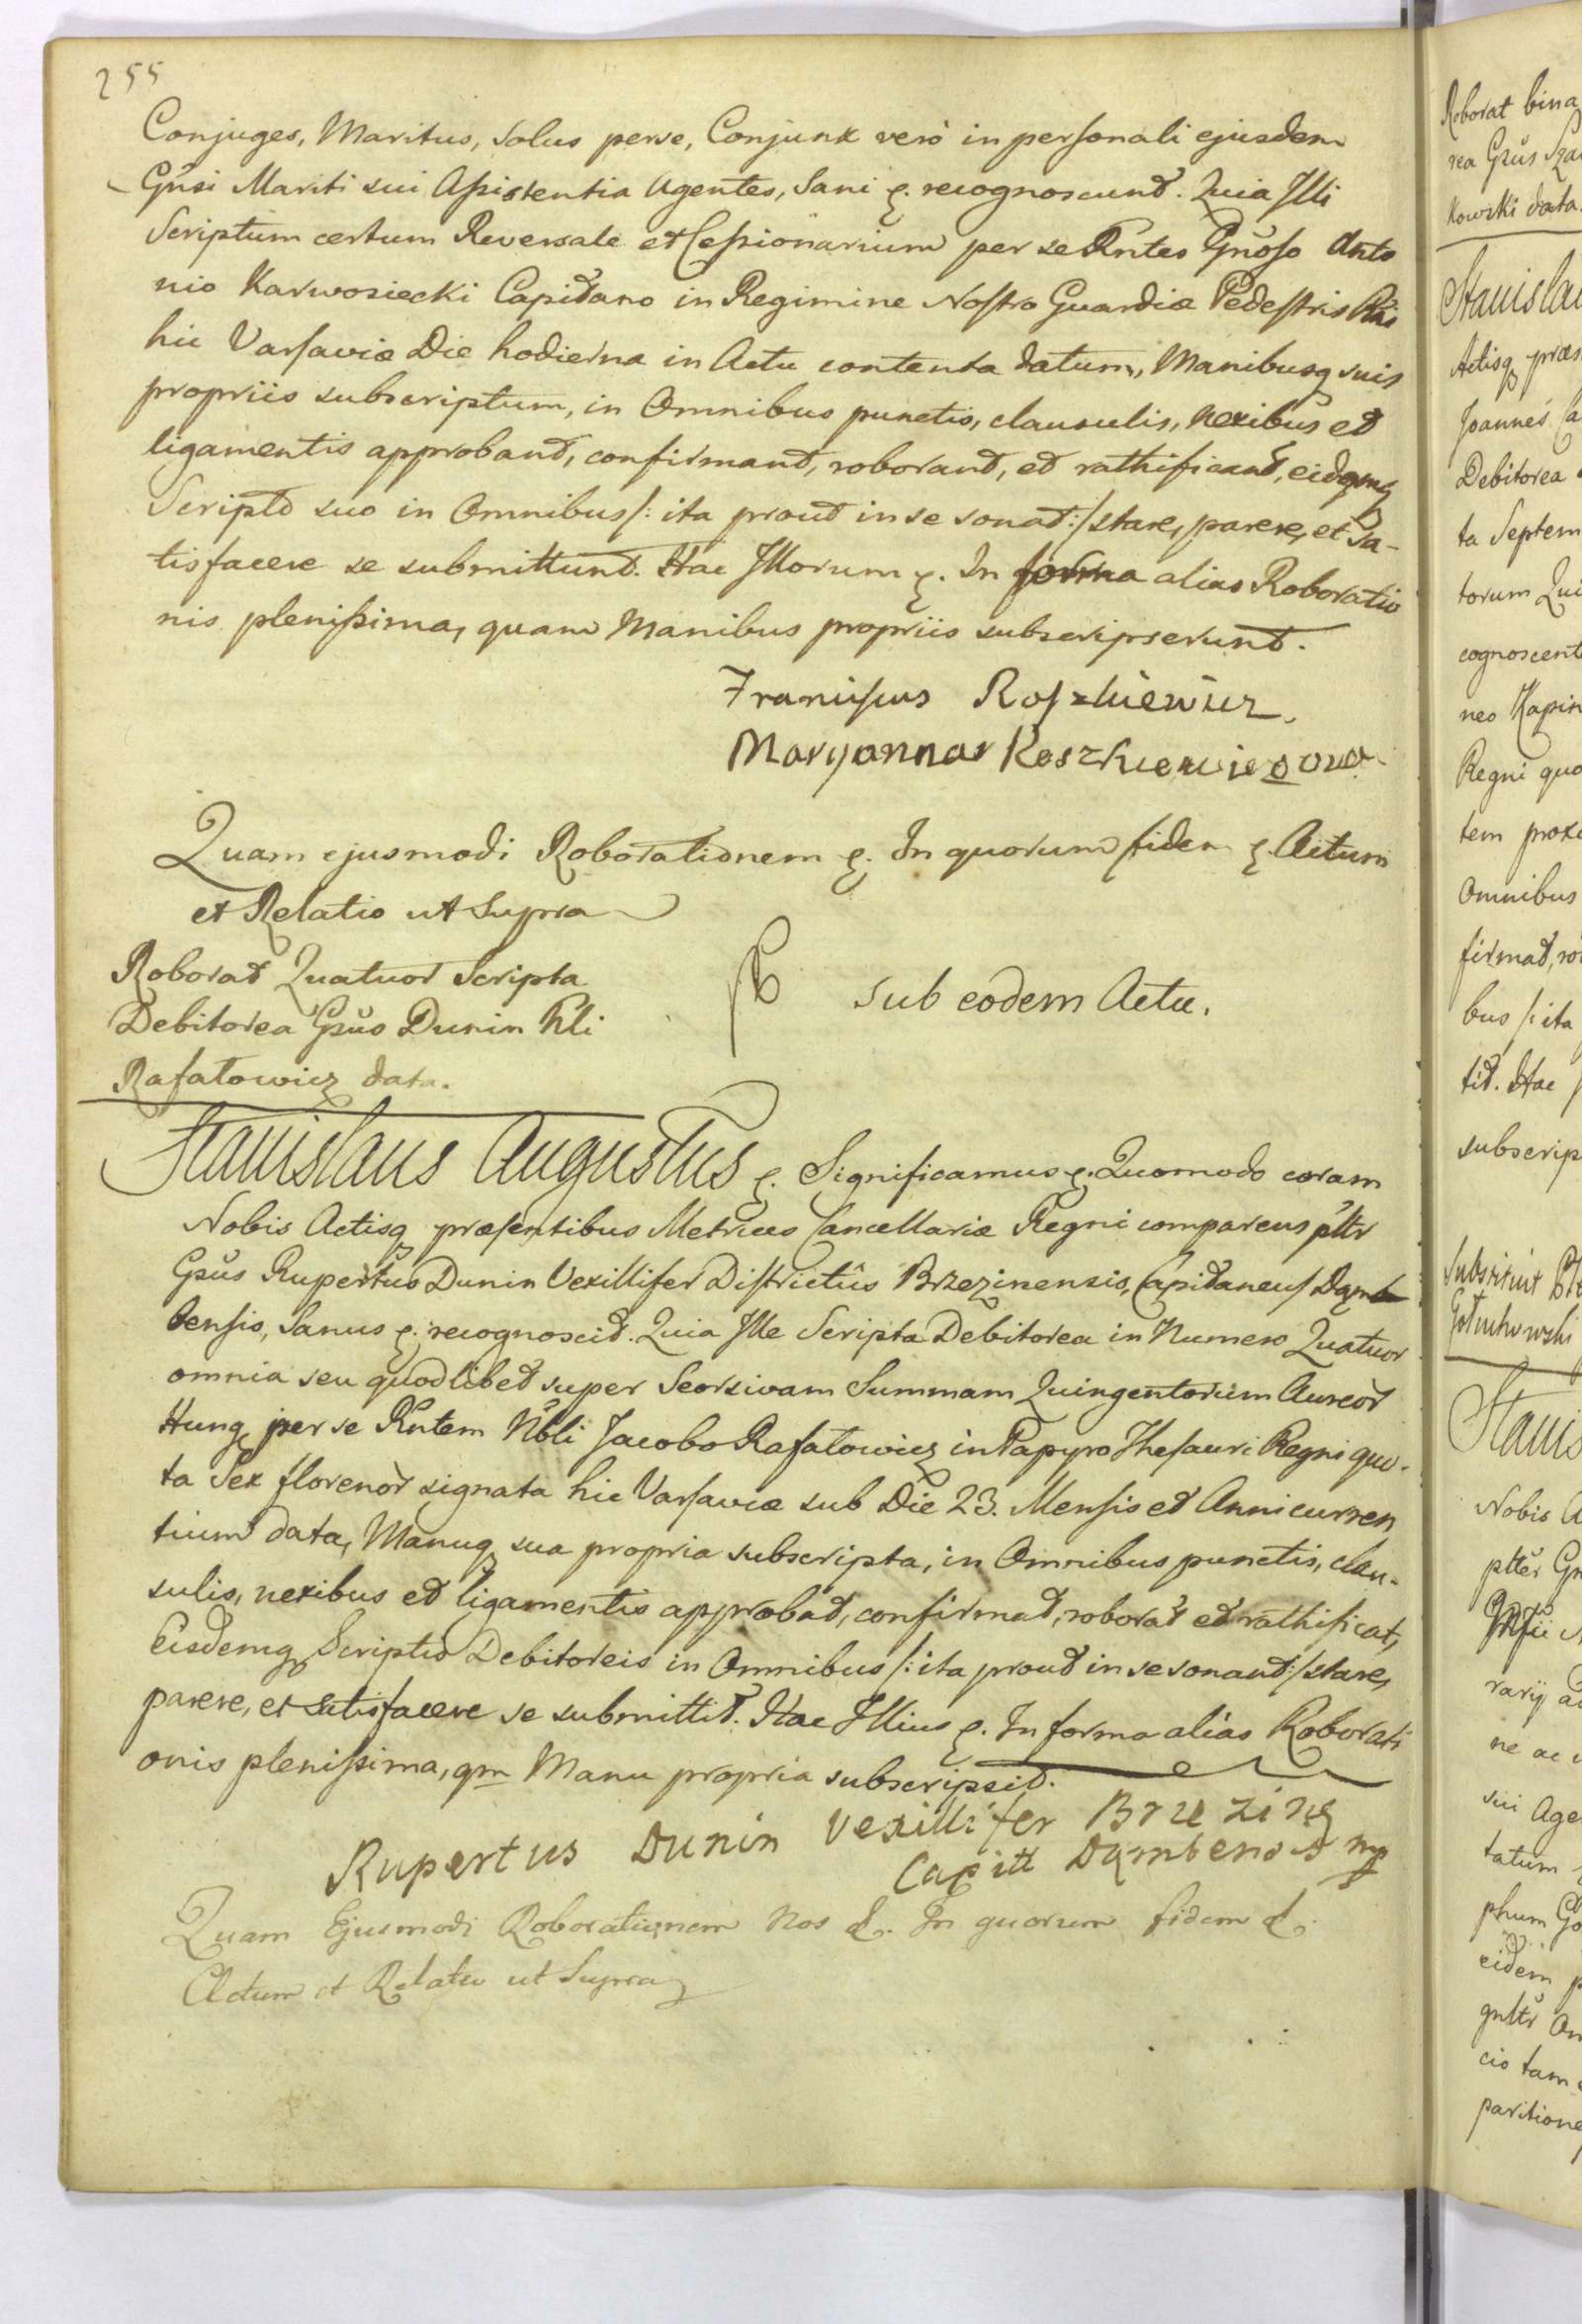 255
Conjuges, Maritus, Solus perse, Conjunx verò in personali ejusdem
Gñsi Mariti sui Assistentia Agentes, Sani &. recognoscunt. Quia Illi
Scriptum certum Reversale et Cessionarium per se Rntes Gnoso Anto
nio Karwosiecki Capitano in Regimine Nostro Guardiæ Pedestris Rñis
hic Varsaviæ Die hodierna in Actu contenta datum, Manibusq suis
propriis subscriptum, in Omnibus punctis, clausulis, nexibus et
ligamentis approbant, confirmant, roborant, et rathificant, eidemq
Scripto suo in Omnibus /: ita prout in se sonat :/ stare, parere, et Sa-
tisfacere se submittunt. Hac Illorum &. In forma alias Roboratio
nis plenissima, quam Manibus propriis subscripserunt.
Franciscus Roszkiewicz.
Maryanna Roszkiewiczowa
Quam ejusmodi Roborationem &. In quorum fidem &. Actum
et Relatio ut Supra
Roborat Quatuor Scripta
Debitorea Gsus Dunin Nli
Rafałowicz data.
sub eodem Actu.
Stanislaus Augustus &. Significamus &. Quomodo coram
Nobis Actisq præsentibus Metrices Cancellariæ Regni comparens pltr
Gsus Rupertus Dunin Vexillifer Districtûs Brzezinensis, Capitaneus Dąm
bensis, Sanus &. recognoscit. Quia Ille Scripta Debitorea in Numero Quatuor
omnia seu quodlibet super Seorsivam Summam Quingentorum Aureor
Hung per se Rntem Nbli Jacobo Rafałowicz in Papyro Thesauri Regni quo-
ta Sex florenor signata hic Varsaviæ sub Die 23. Mensis et Anni curren
tium data, Manuq sua propria subscripta, in Omnibus punctis, clau-
sulis, nexibus et ligamentis approbat, confirmat, roborat et rathificat,
Eisdemq Scriptis Debitoreis in Omnibus /: ita prout in se sonant :/ stare,
parere, et satisfacere se submittit. Hac Illius &. In forma alias Roborati
onis plenissima, qm Manu propria subscripsit.
Rupertus Dunin Vexillifer Brzezin
Capitt Dąmbensis mp
Quam Ejusmodi Roborationem Nos &. In quorum fidem &.
Actum et Relatio ut Supra
Roborat bina
rea Gsus
kowski data
Stanislau
Actisq præs
Joannes
Debitorea
ta Septem
torum Qui
cognoscent
neo Kapin
Regni quo
tem
Omnibus
firmat, ro
bus /: ita
tit. Hac
subscrip
Gołuchowski
Stanis
Nobis A
ne ac
sui Age
tatum
phum Go
eidem p
cio tam
paritione